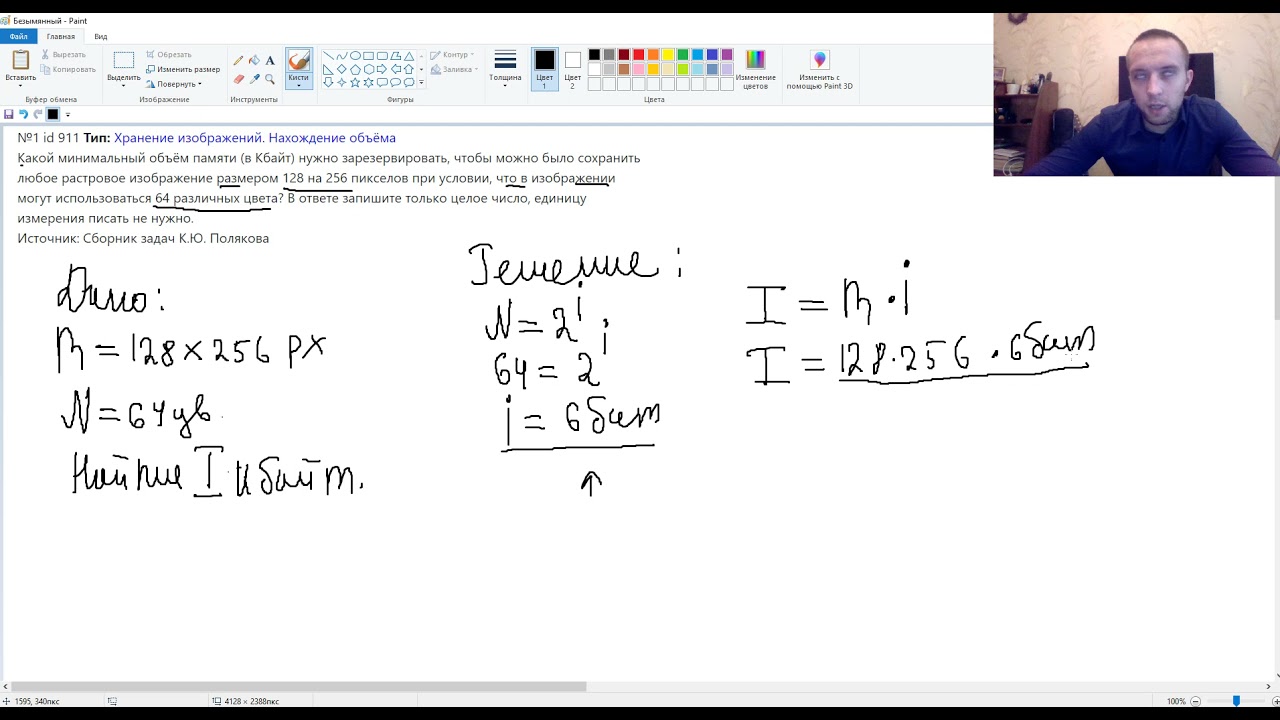 Безымянный - Paint
Файл Главная Вид
Вставить
Вырезать
Копировать
Буфер обмена
Выделить
Обрезать
Изменить размер
Повернуть
Изображение
Инструменты
Кисти
Фигуры
Контур
Заливка
Толщина
Цвет 1
Цвет 2
Цвета
Изменение цветов
Изменить с помощью Paint 3D
№1 id 911 Тип: Хранение изображений. Нахождение объёма
Какой минимальный объём памяти (в Кбайт) нужно зарезервировать, чтобы можно было сохранить
любое растровое изображение размером 128 на 256 пикселов при условии, что в изображении
могут использоваться 64 различных цвета? В ответе запишите только целое число, единицу
измерения писать не нужно.
Источник: Сборник задач К.Ю. Полякова
Дано:
m = 128 x 256 px
N = 64 цв
Найти I Кбайт.
Решение:
N = 2^i
64 = 2^i
i = 6 бит
↑
I = m · i
I = 128 · 256 · 6 бит
1595, 340пкс
4128 × 2388пкс
100%